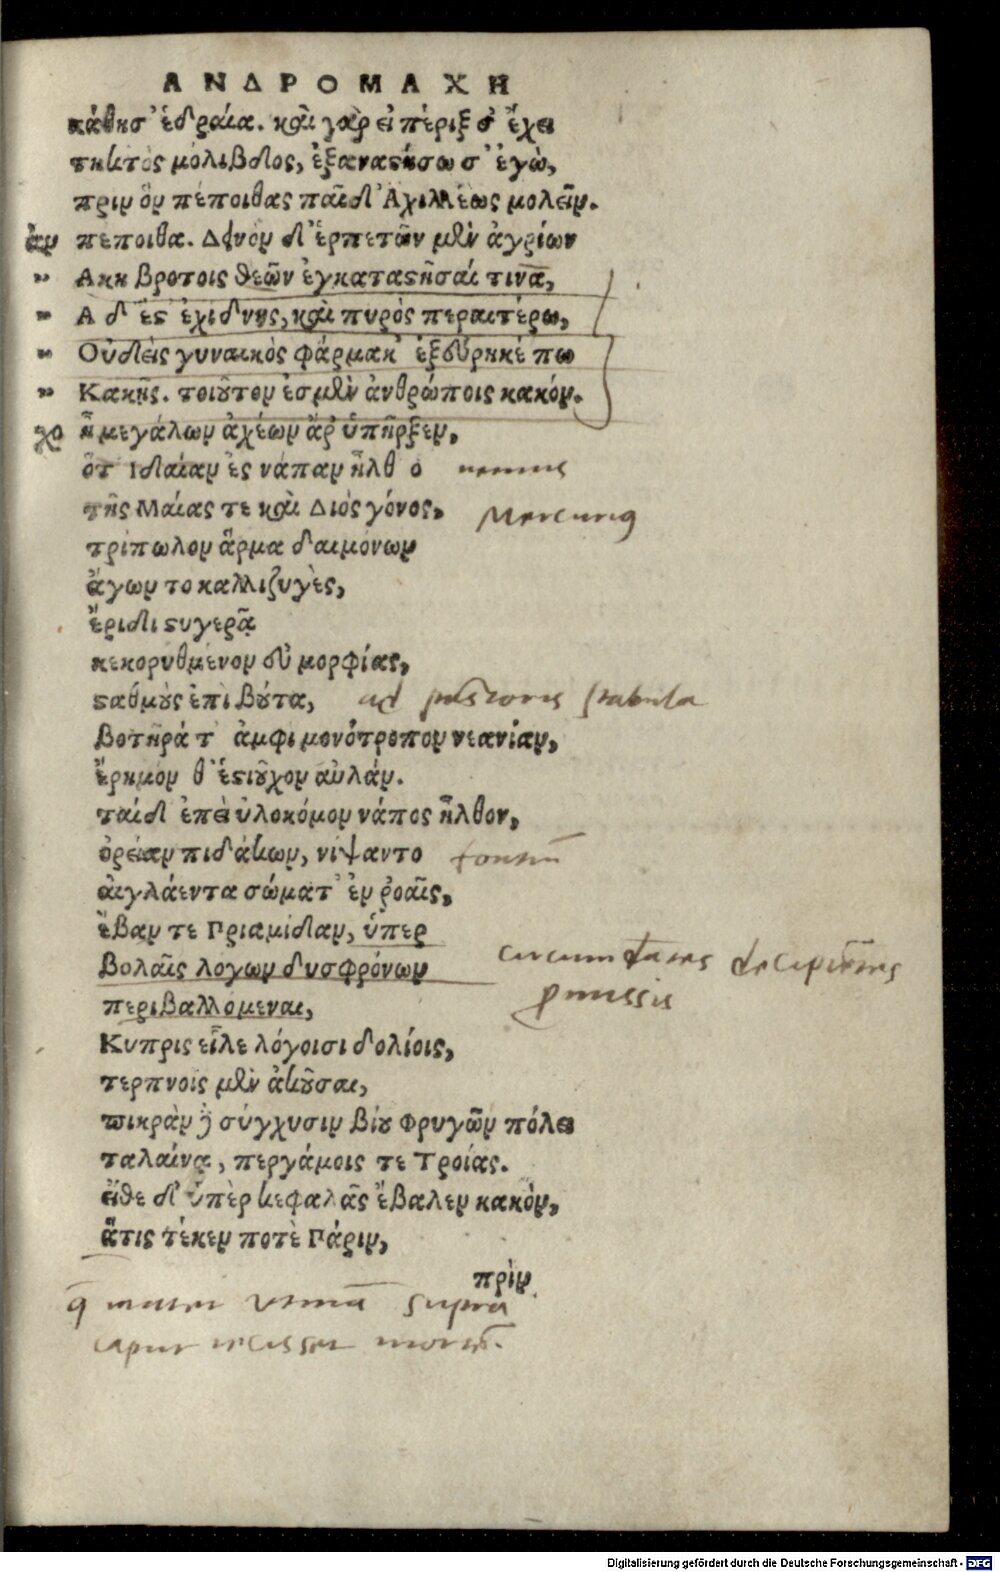 ΑΝΔΡΟΜΑΧΗ
κάθησ' ἑδραία. καὶ γὰρ εἰ πέριξ σ' ἔχει
τηκτὸς μόλιβδος, ἐξαναστήσω σ' ἐγὼ,
πριν ὃν πέποιθας παῖδ' Ἀχιλλέως μολεῖν.
ἀν πέποιθα. Δεινὸν δ' ἑρπετῶν μὲν ἀγρίων
" Ακη βροτοις θεῶν ἐγκαταστῆσαί τινα,
" Α δ' ἐστ' ἐχίδνης, καὶ πυρὸς περαιτέρω,
" Οὐδεὶς γυναικὸς φάρμακ' ἐξεύρηκέ πω
" Κακῆς. τοιοῦτον ἐσμὲν ἀνθρώποις κακόν.
χο ἦ μεγάλων ἀχέων ἄρ' ὑπῆρξεν,
ὅτ' Ιδαίαν ἐς νάπαν ἦλθ' ὁ nemus
τῆς Μαίας τε καὶ Διὸς γόνος, Mercurius
τρίπωλον ἅρμα δαιμόνων
ἄγων το καλλιζυγὲς,
ἔριδι στυγερᾷ
κεκορυθμένον εὐμορφίας,
σταθμοὺς ἐπὶ βούτα, ad pastoris stabula
Βοτῆρά τ' ἀμφι μονότροπον νεανίαν,
ἔρημον θ' ἑστιοῦχον αὐλάν.
ταὶ δ' ἐπεὶ ὑλοκόμον νάπος ἦλθον,
ὀρείαν πιδάκων, νίψαντο fontium
αἰγλάεντα σώματ' ἐν ῥοαῖς,
ἔβαν τε Πριαμίδαν, ὑπερ
Βολαῖς λόγων δυσφρόνων circumdantes decipientes
περιβαλλόμεναι, promissis
Κυπρις εἷλε λόγοισι δολίοις,
τερπνοῖς μὲν ἀκοῦσαι,
πικρὰν δὲ σύγχυσιν βίου Φρυγῶν πόλει
ταλαίνᾳ, περγάμοις τε Τροίας.
εἴθε δ' ὑπὲρ κεφαλᾶς ἔβαλεν κακὸν,
ἅτις τέκεν ποτὲ Πάριν,
πρὶν
q mater utinā supra
caput iecisset mortē.
Digitalisierung gefördert durch die Deutsche Forschungsgemeinschaft - DFG